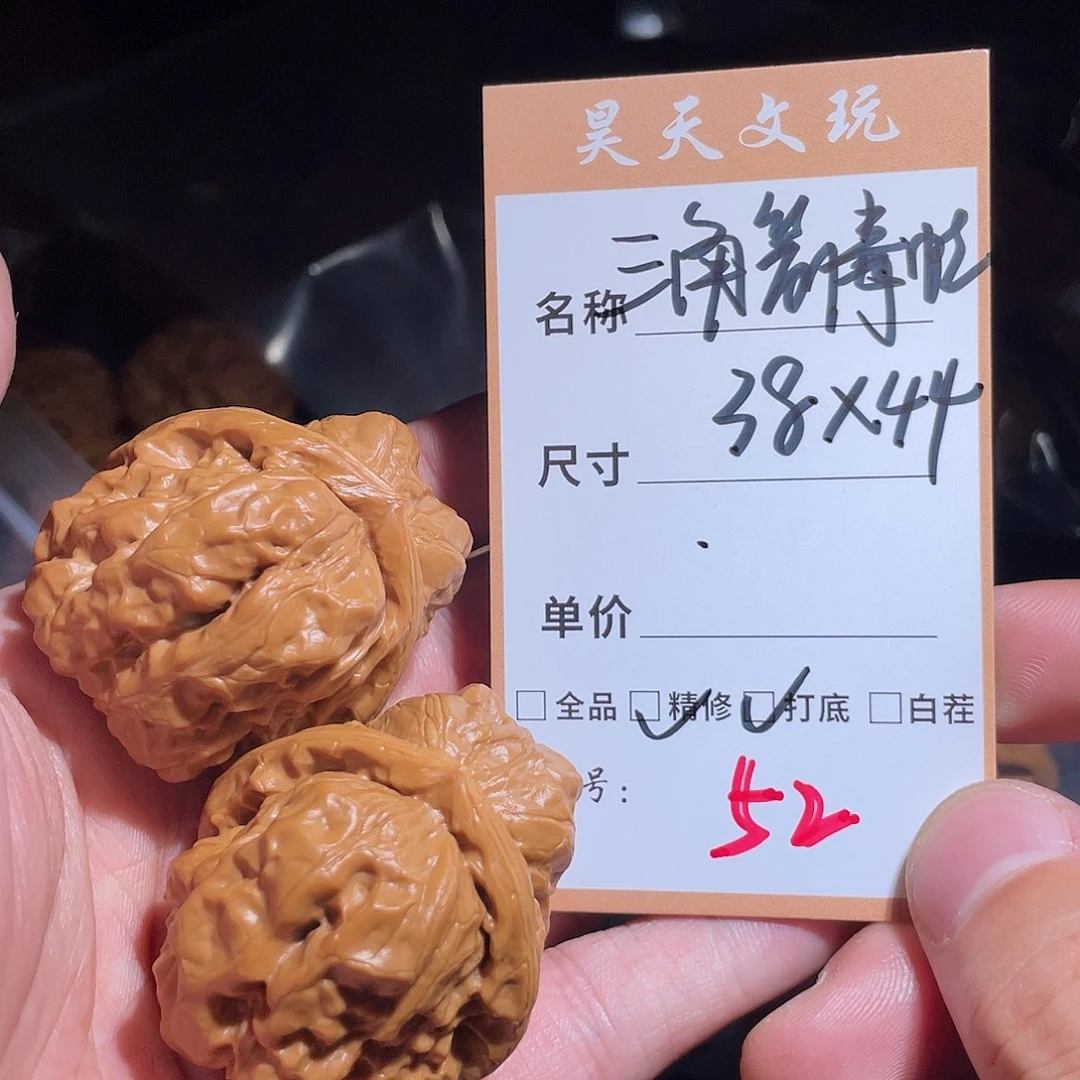 昊天文玩
名称 三角
尺寸 38×44
单价
□全品 □精修 □打底 □白茬
号: 52